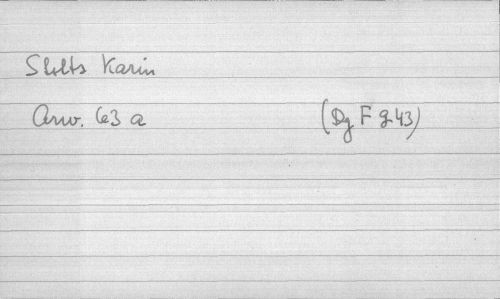 Stolts Karin
Arw. 63 a (Dg F g 43)